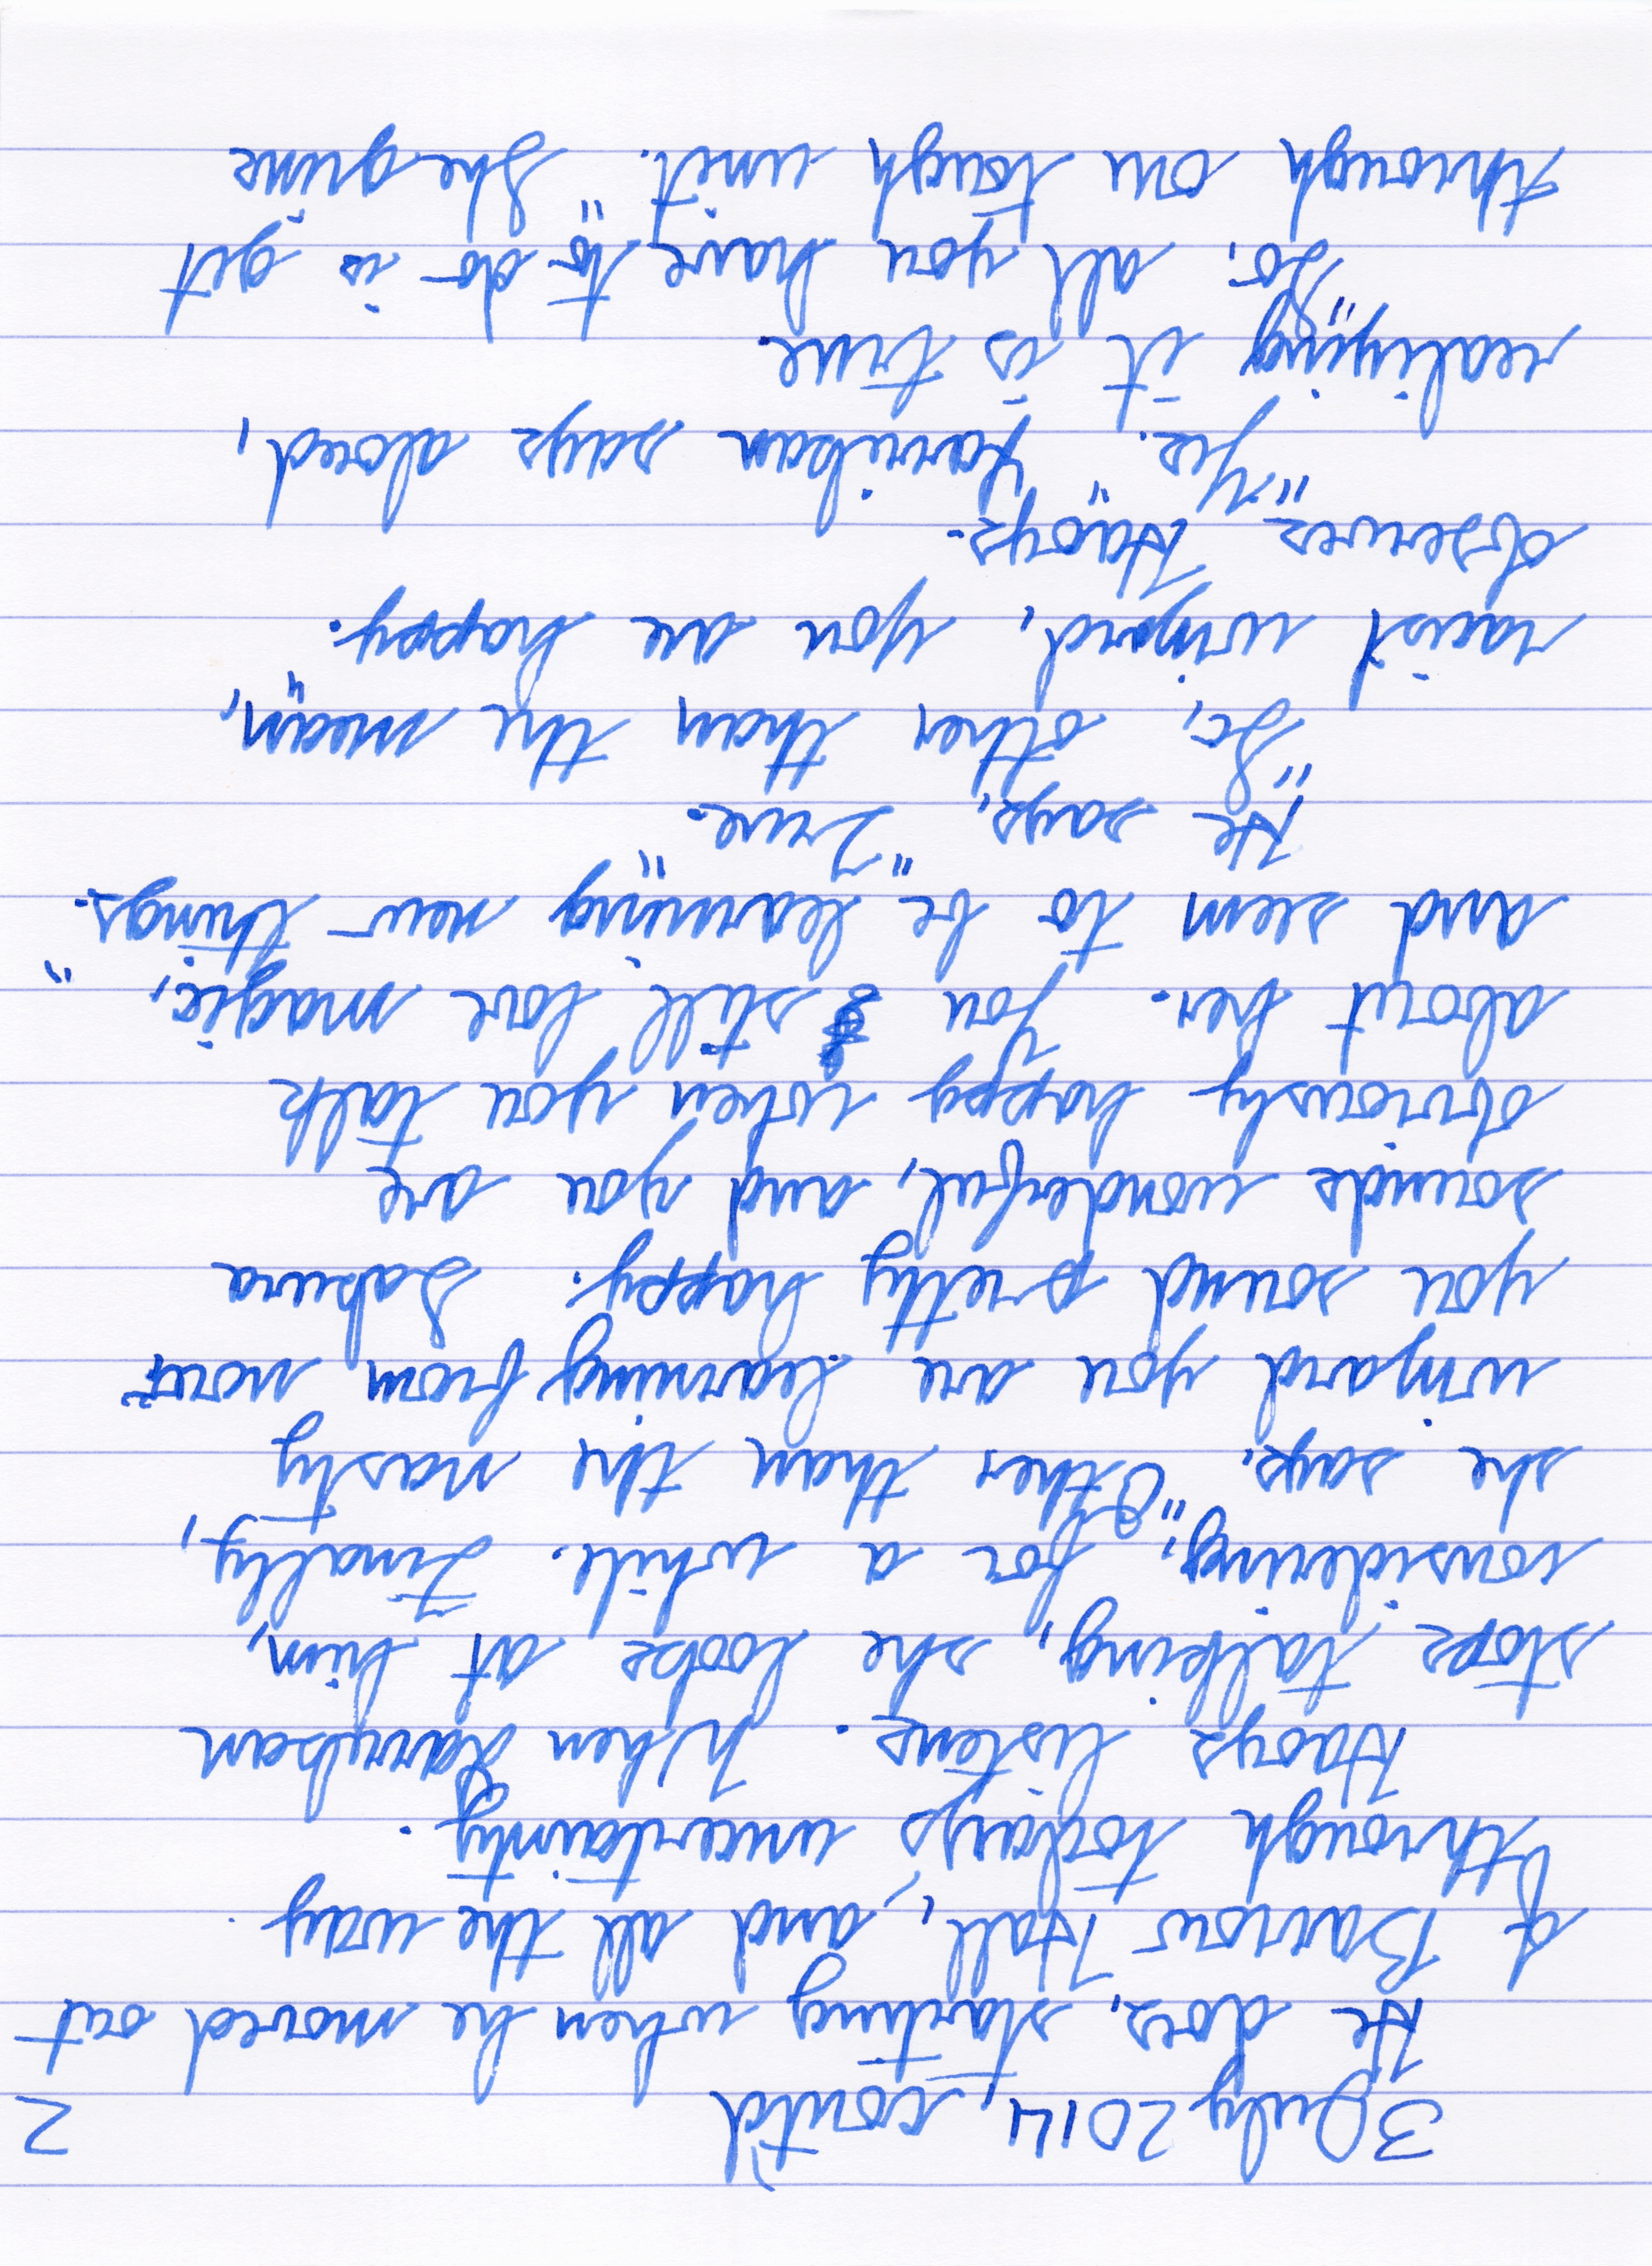 3 July 2014, cont'd 2
He does, starting when he moved out
of Barrow Hall, and all the way
through today's uncertainty.
Haoys listens. When Larryban
stops talking, she looks at him,
considering, for a while. Finally,
she says, "Other than the nasty
wizard you are learning from now,
you sound pretty happy. Sakura
sounds wonderful, and you are
obviously happy when you talk
about her. You still love magic,
and seem to be learning new things."
He says, "True."
"So, other than the mean,
racist wizard, you are happy."
observes Haoys.
"Yes." Larriban says aloud,
realizing it is true.
"So, all you have to do is get
through on tough unit." She grins